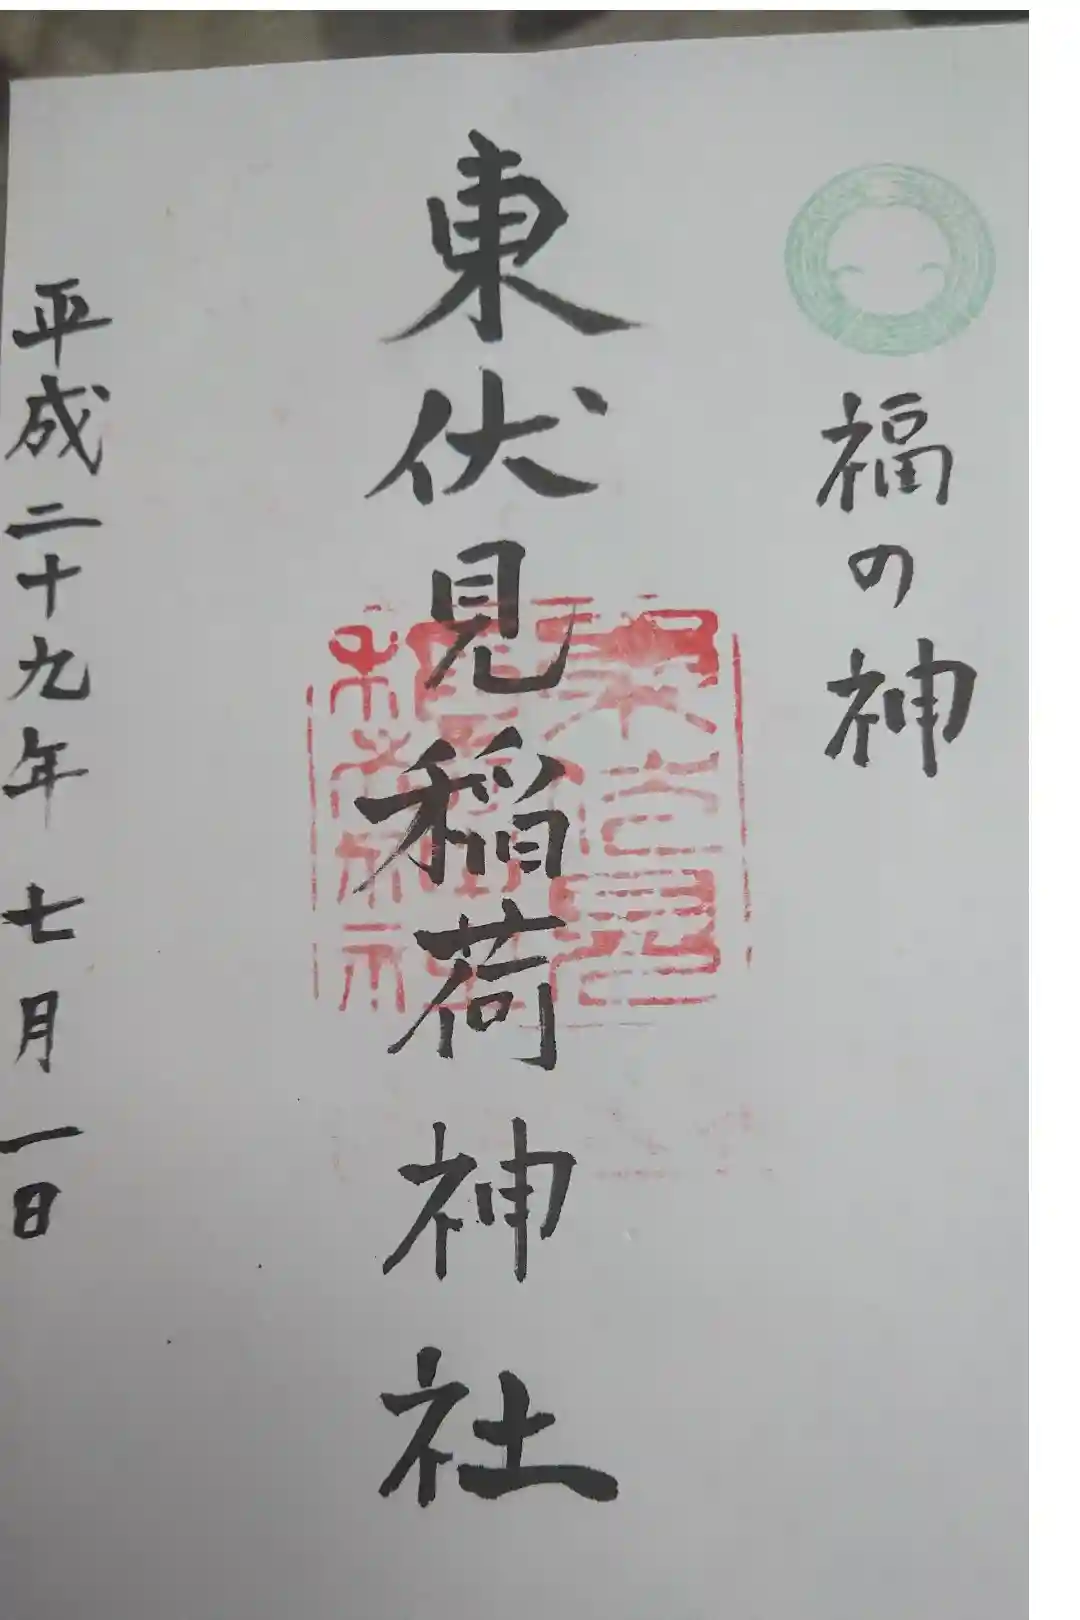 福の神
東伏見稲荷神社
平成二十九年七月一日